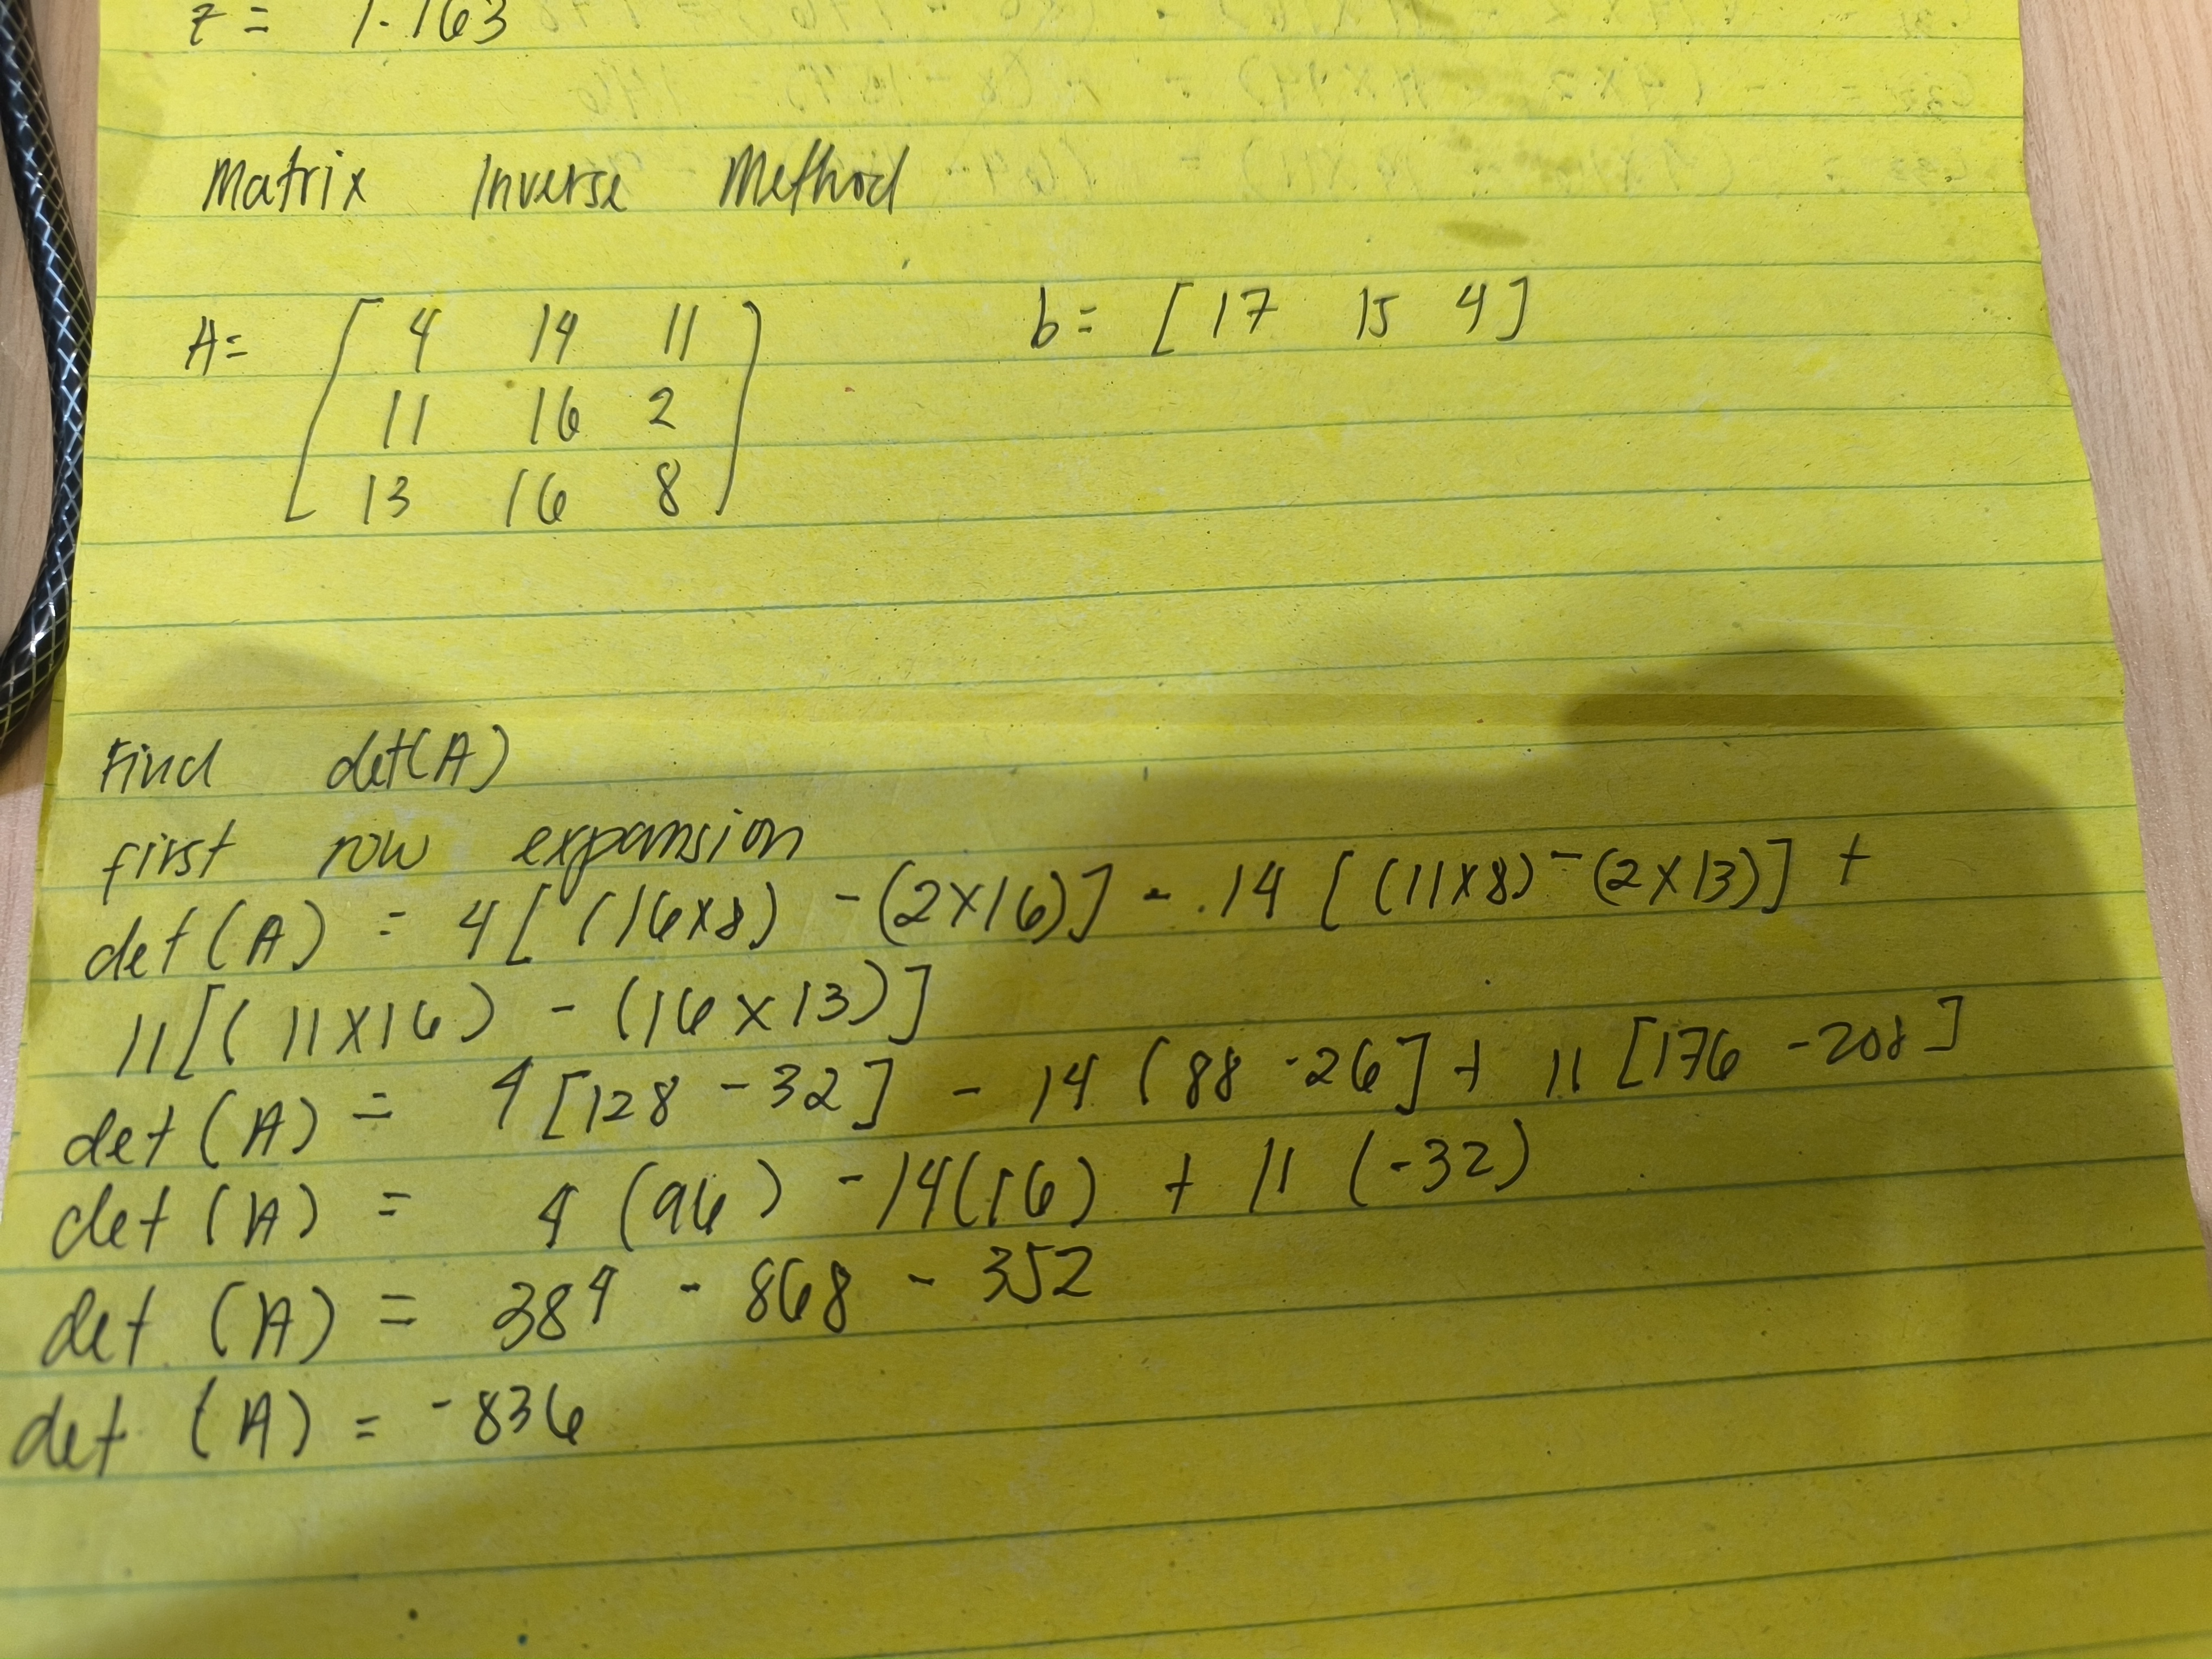 z = 1.163
Matrix Inverse Method
A= [ 4 14 11 b= [17 15 4]
11 16 2
13 16 8 ]
Find det(A)
first row expansion
det(A) = 4[(16x8) -(2x16)] - 14 [(11x8)-(2x13)] +
11[(11x16) - (16x13)]
det(A) = 4[128 -32] - 14 (88 -26] + 11 [176 -208]
det(A) = 4 (96) -14(16) + 11 (-32)
det (A) = 384 - 868 - 352
det (A) = -836